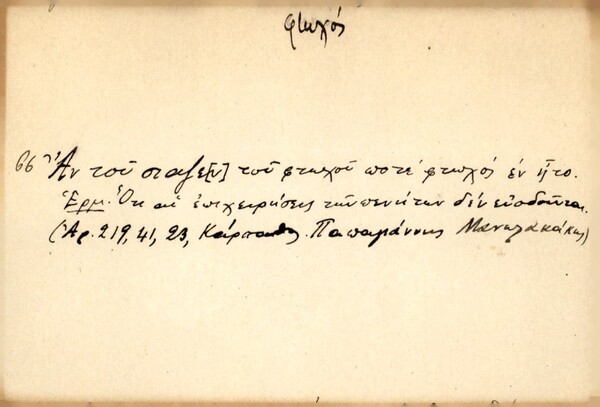 φτωχός
66 Ἂν τοῦ σταζε[ν] τοῦ φτωχοῦ ποτὲ φτωχός ἐν ἦτο.
Ἑρμ. Ὅτι αἱ ἐπιχειρήσεις τῶν πενήτων δέν εὐοδοῦνται.
(Ἀρ. 219, 41, 23, Κάρπαθος. Παπαγιάννης Μανωλακάκης)